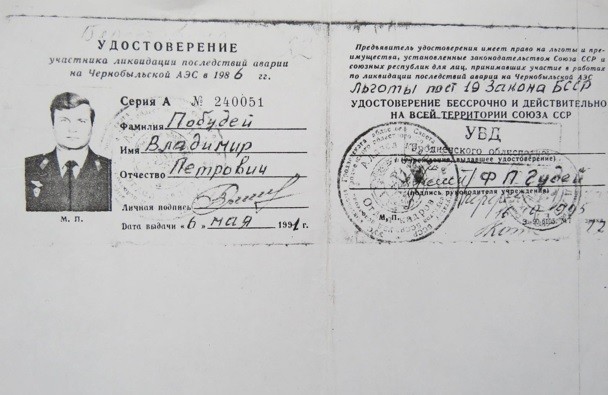 УДОСТОВЕРЕНИЕ
участника ликвидации последствий аварии
на Чернобыльской АЭС в 1986 гг.
Серия А № 240051
Фамилия Побудей
Имя Владимир
Отчество Петрович
Личная подпись
М. П.
Дата выдачи "6" мая 1991г.
Предъявитель удостоверения имеет право на льготы и пре-
имущества, установленные законодательством Союза ССР и
союзных республик для лиц, принимавших участие в работах
по ликвидации последствий аварии на Чернобыльской АЭС
Льготы по ст 19 Закона БССР
УДОСТОВЕРЕНИЕ БЕССРОЧНО И ДЕЙСТВИТЕЛЬНО
НА ВСЕЙ ТЕРРИТОРИИ СОЮЗА ССР
УВД
Гродненского облисполкома
выдавшее удостоверение)
Ф П Гудей
(подпись руководителя учреждения)
М. П.
1995